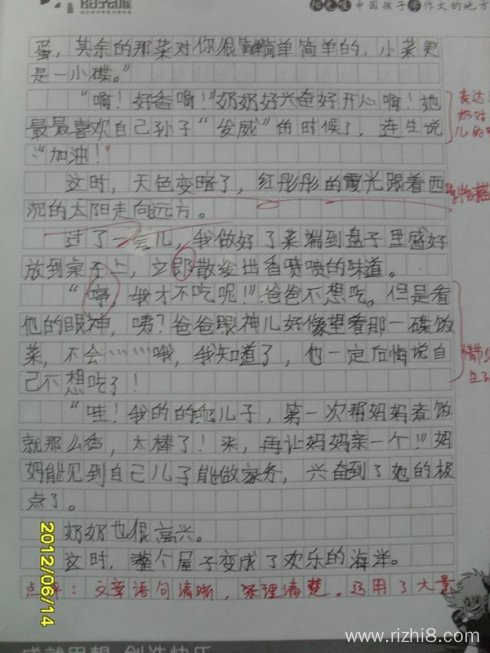 中国孩子 作文的地方
蛋，其余的那菜对你很简单简单的，小菜更
是一小碟。”
“啊！好香啊！”奶奶好兴奋好开心啊！她
最最喜欢自己孙子“发威”的时候了，连连说
“加油！”
表达
这时，天色变暗了，红彤彤的霞光跟着西
沉的太阳走向远方。
过了一会儿，我做好了菜端到盘子里盛好
放到桌子上，立即散发出香喷喷的味道。
“哼，我才不吃呢！”爸爸不想吃。但是看
他的眼神，咦？爸爸眼神儿好像望着那一碟饭
菜，不会……哦，我知道了，他一定后悔说自
己不想吃了！
“哇！我的的乖儿子，第一次帮妈妈煮饭
就那么香，太棒了！来，再让妈妈亲一个！”妈
妈能见到自己儿子能做家务，兴奋到了她的极
点了。
奶奶也很高兴。
这时，整个屋子变成了欢乐的海洋。
点评：文章语句清晰，条理清楚，巧用了大量
2012/06/14
www.rizhi8.com